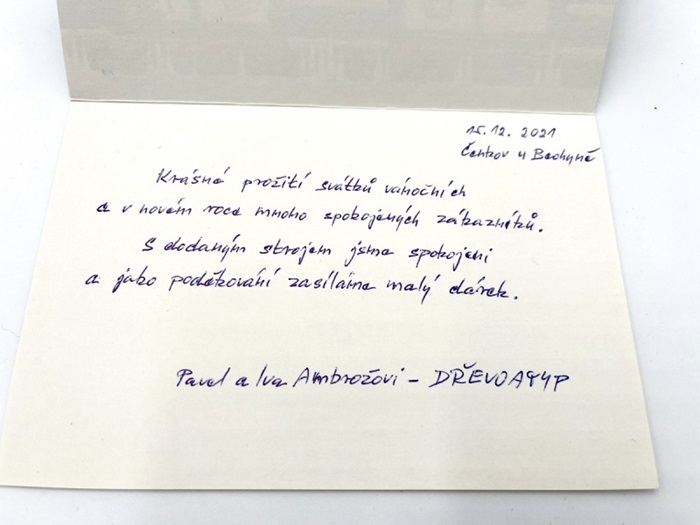 15.12.2021
Čenkov u Bechyně
Krásné prožití svátků vánočních
a v novém roce mnoho spokojených zákazníků.
S dodaným strojem jsme spokojeni
a jako poděkování zasíláme malý dárek.
Pavel a Iva Ambrožovi – DŘEVOATYP